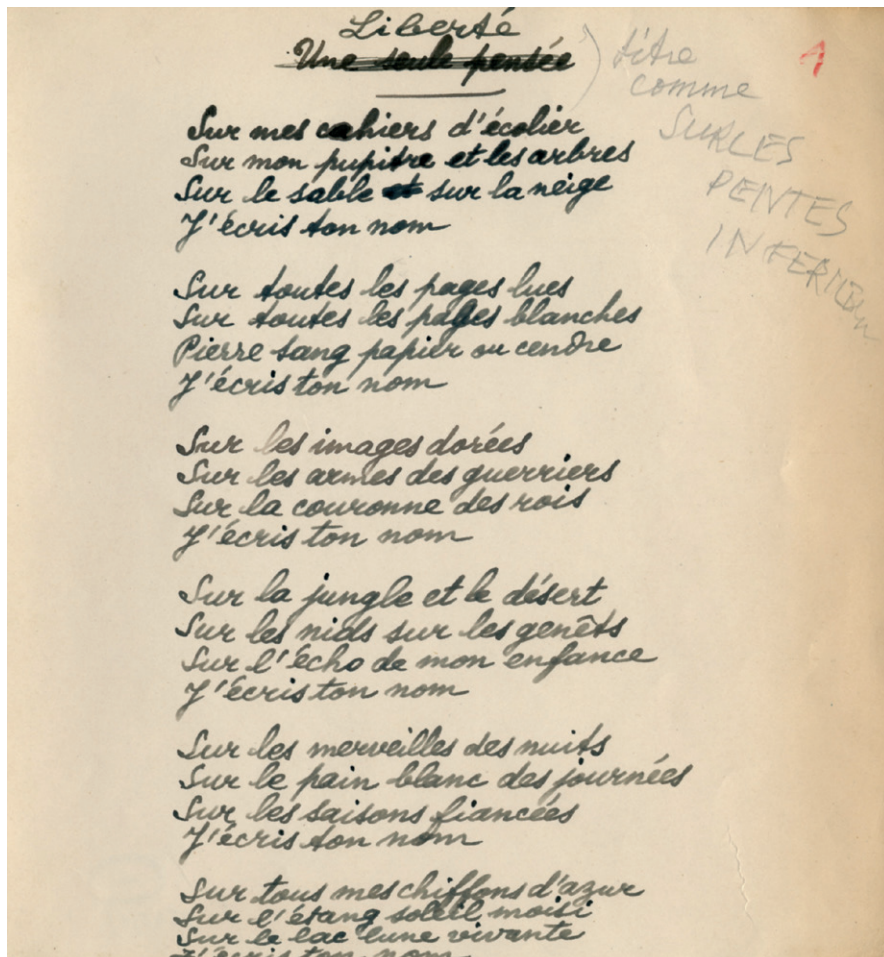 Liberté
Une seule pensée
titre
comme
SUR LES
PENTES
A
Sur mes cahiers d'écolier
Sur mon pupitre et les arbres
Sur le sable et sur la neige
J'écris ton nom
Sur toutes les pages lues
Sur toutes les pages blanches
Pierre sang papier ou cendre
J'écris ton nom
Sur les images dorées
Sur les armes des guerriers
Sur la couronne des rois
J'écris ton nom
Sur la jungle et le désert
Sur les nids sur les genêts
Sur l'écho de mon enfance
J'écris ton nom
Sur les merveilles des nuits
Sur le pain blanc des journées
Sur les saisons fiancées
J'écris ton nom
Sur tous mes chiffons d'azur
Sur l'étang soleil moisi
Sur le lac lune vivante
J'écris ton nom